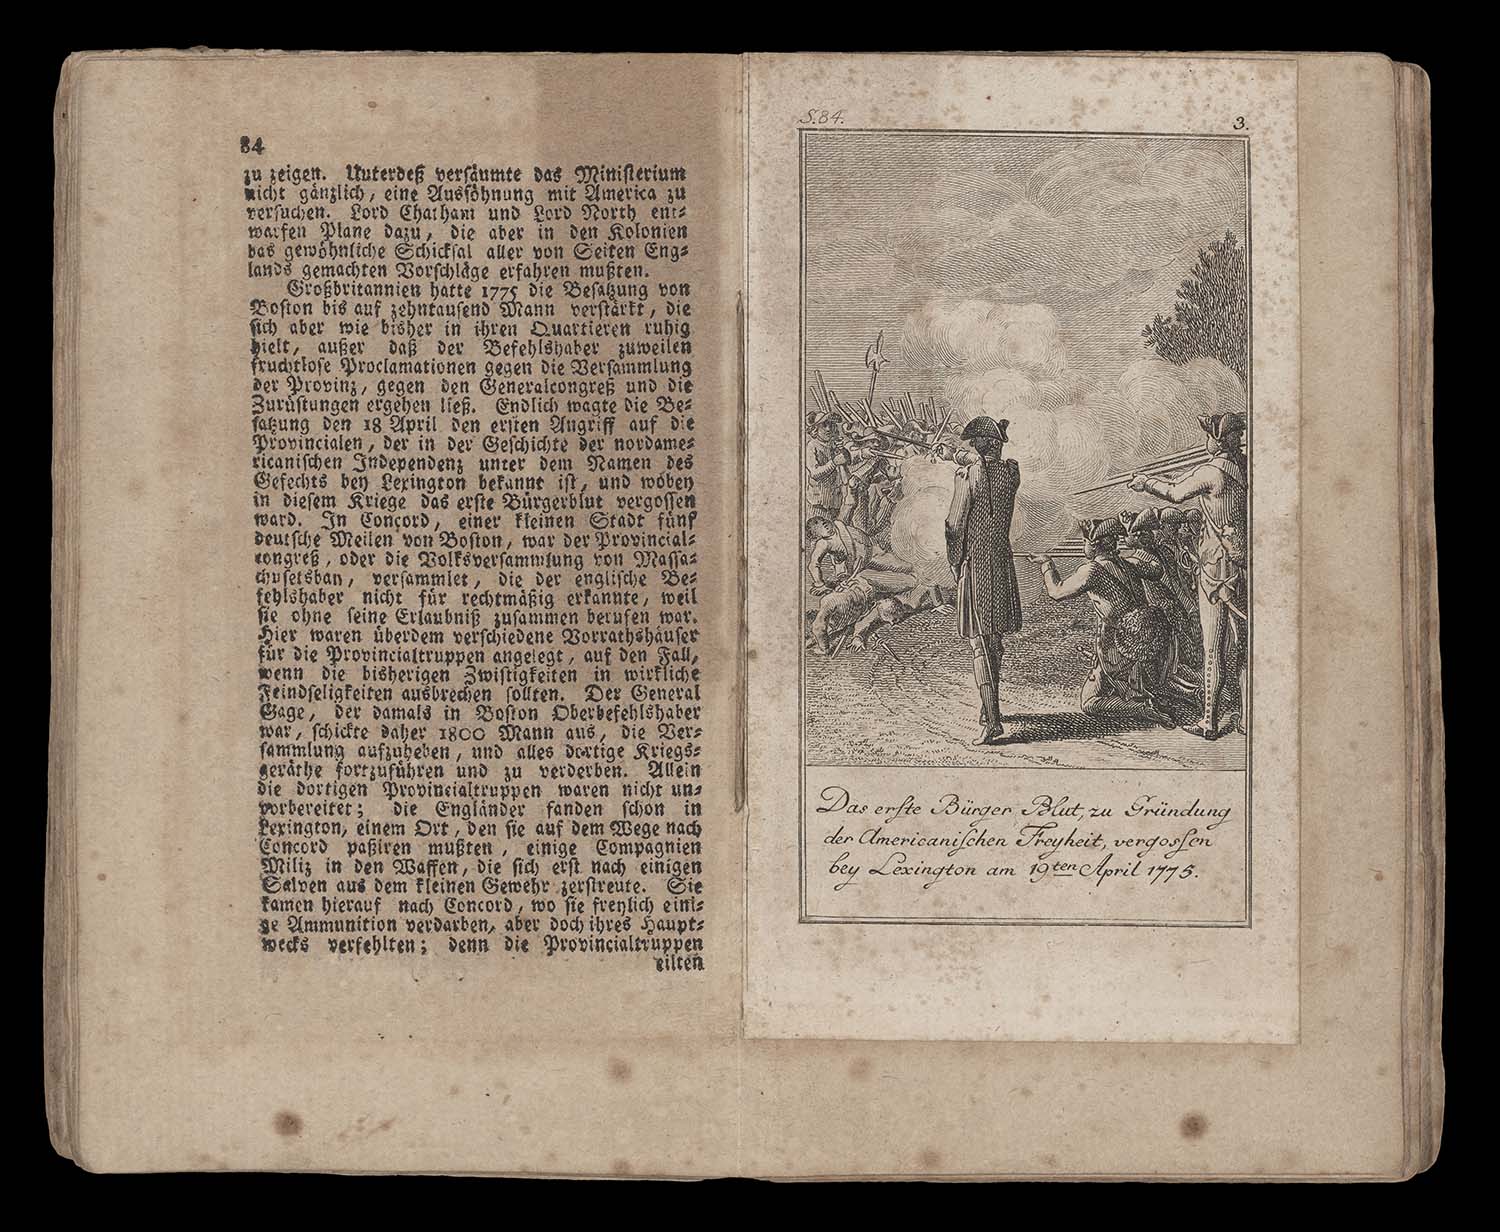 84
zu zeigen. Unterdeß versäumte das Ministerium
nicht gänzlich, eine Aussöhnung mit America zu
versuchen. Lord Chatham und Lord North ent⸗
warfen Plane dazu, die aber in den Kolonien
das gewöhnliche Schicksal aller von Seiten Eng⸗
lands gemachten Vorschläge erfahren mußten.
Großbritannien hatte 1775 die Besatzung von
Boston bis auf zehntausend Mann verstärkt, die
sich aber wie bisher in ihren Quartieren ruhig
hielt, außer daß der Befehlshaber zuweilen
fruchtlose Proclamationen gegen die Versammlung
der Provinz, gegen den Generalcongreß und die
Zurüstungen ergehen ließ. Endlich wagte die Be⸗
satzung den 18 April den ersten Angriff auf die
Provincialen, der in der Geschichte der nordame⸗
ricanischen Independenz unter dem Namen des
Gefechts bey Lexington bekannt ist, und wobey
in diesem Kriege das erste Bürgerblut vergossen
ward. In Concord, einer kleinen Stadt fünf
deutsche Meilen von Boston, war der Provincial⸗
congreß, oder die Volksversammlung von Massa⸗
chusetsbay, versammlet, die der englische Be⸗
fehlshaber nicht für rechtmäßig erkannte, weil
sie ohne seine Erlaubniß zusammen berufen war.
Hier waren überdem verschiedene Vorrathshäuser
für die Provincialtruppen angelegt, auf den Fall,
wenn die bisherigen Zwistigkeiten in wirkliche
Feindseligkeiten ausbrechen sollten. Der General
Gage, der damals in Boston Oberbefehlshaber
war, schickte daher 1800 Mann aus, die Ver⸗
sammlung aufzuheben, und alles dortige Kriegs⸗
geräthe fortzuführen und zu verderben. Allein
die dortigen Provincialtruppen waren nicht un⸗
vorbereitet; die Engländer fanden schon in
Lexington, einem Ort, den sie auf dem Wege nach
Concord paßiren mußten, einige Compagnien
Miliz in den Waffen, die sich erst nach einigen
Salven aus dem kleinen Gewehr zerstreute. Sie
kamen hierauf nach Concord, wo sie freylich eini⸗
ge Ammunition verdarben, aber doch ihres Haupt⸗
wecks verfehlten; denn die Provincialtruppen
eilten
S. 84.
3.
Das erste Bürger Blut, zu Gründung
der Americanischen Freyheit, vergossen
bey Lexington am 19ten April 1775.